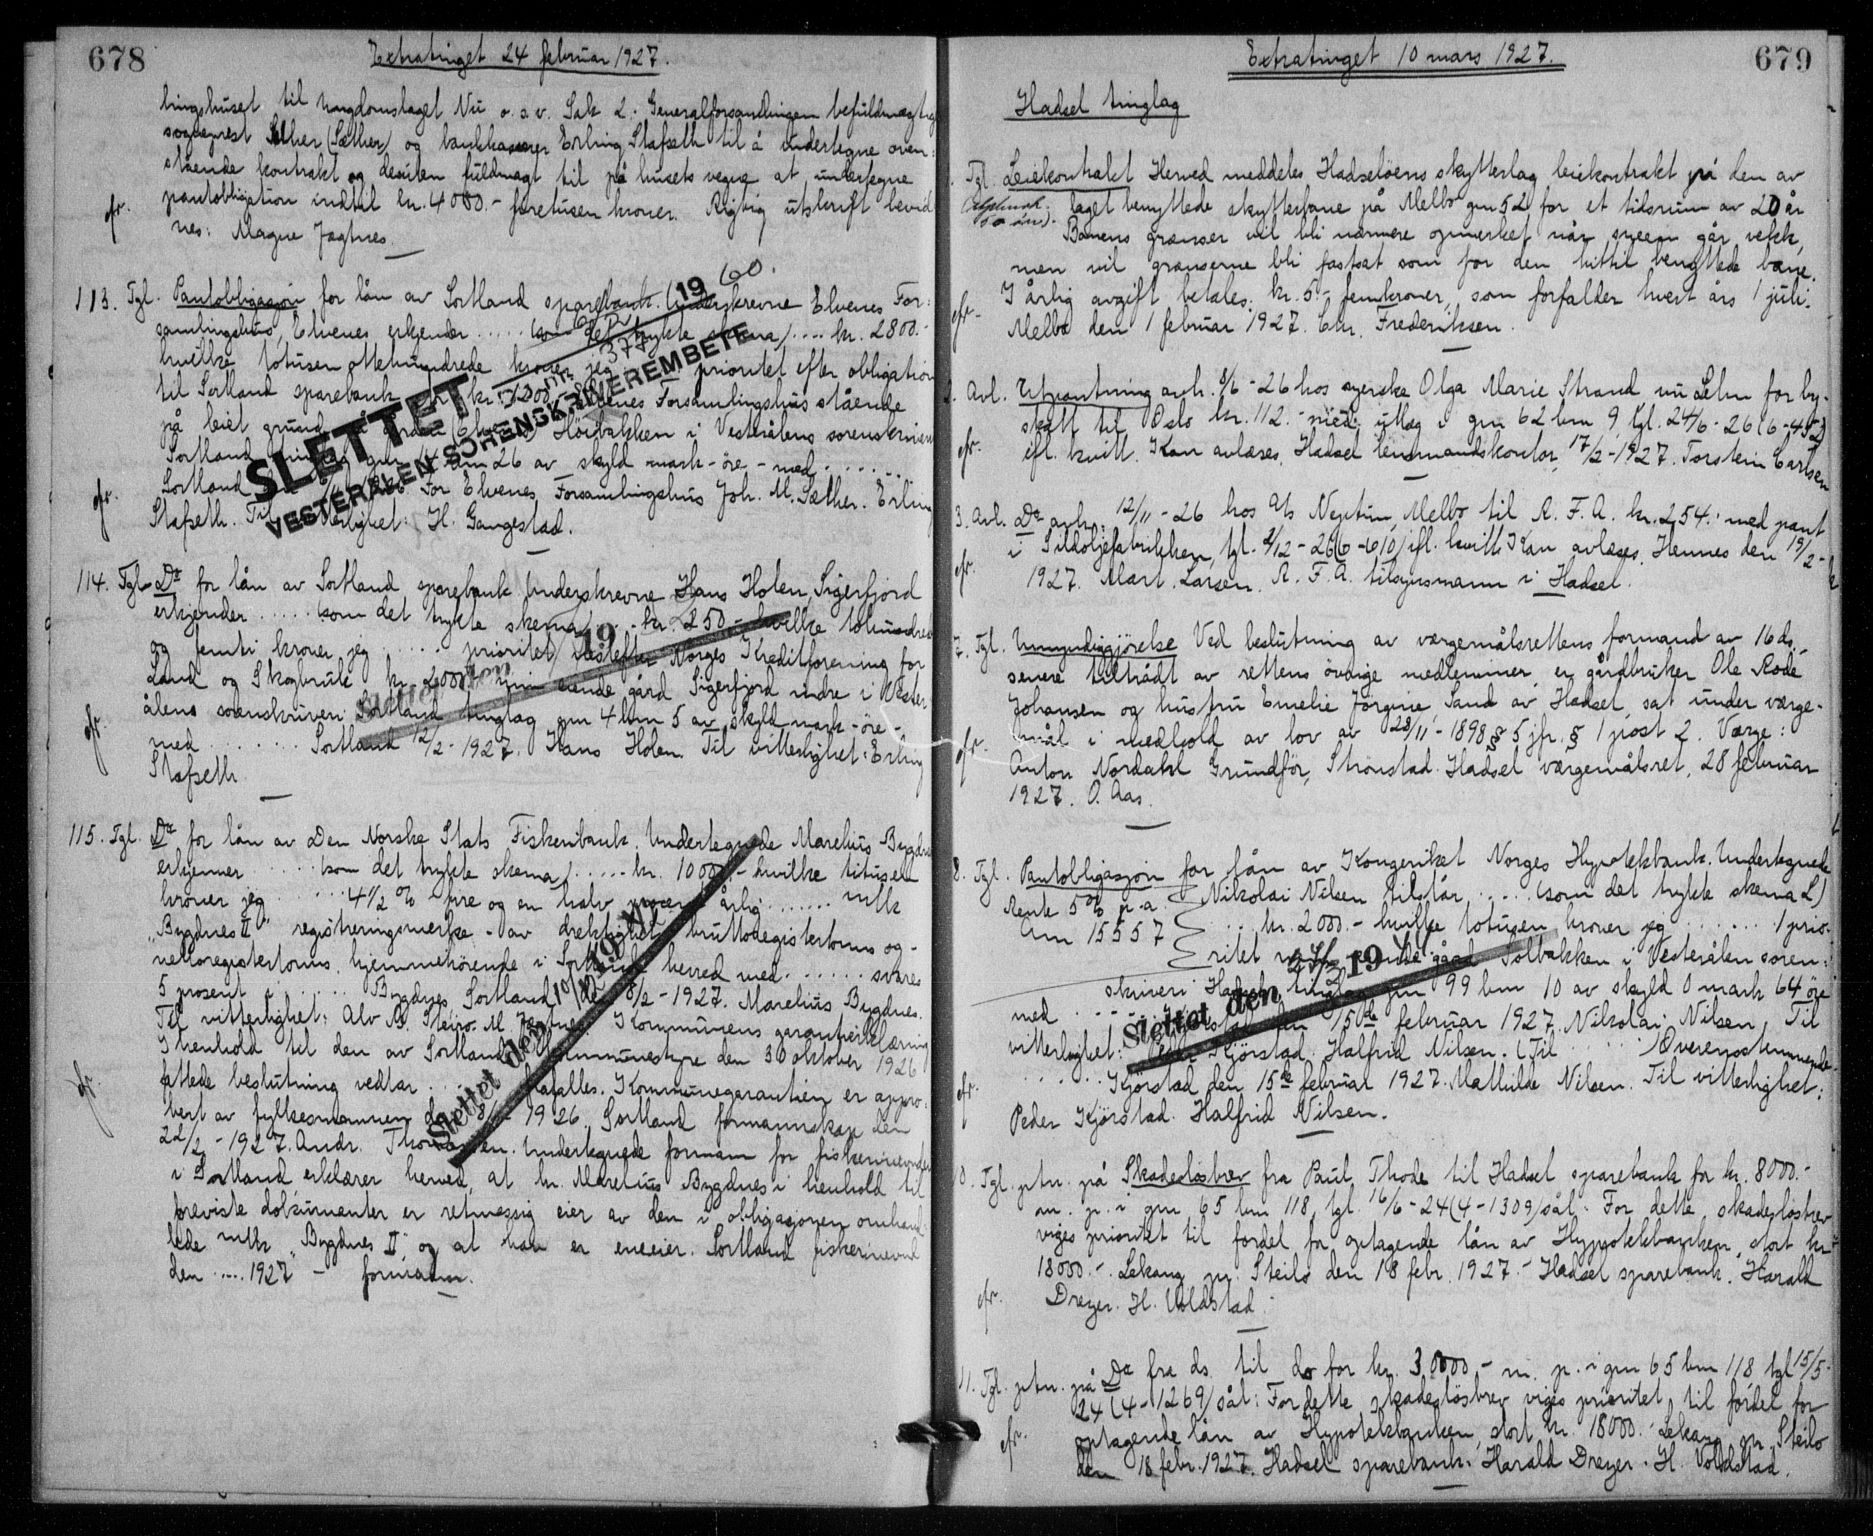 678
Extratinget 24 februar 1927.
tingshuset til Ungdomslaget Nu o.s.v. Sak 2. Generalforsamlingen befuldmægtig
sogneprest Sæther (Sæther) og bankkasserer Erling Stafseth til å undertegne oven-
stående kontrakt og desuten fuldmagt til på husets vegne at undertegne
pantobligation indtil kr. 4000.- firetusen kroner. Rigtig utskrift bevid
nes: Magne Jægtnes.
cfr.
113. Tgl. Pantobligasjon for lån av Sortland sparebank. Underskrevne Elvenes For-
samlingshus, Elvenes erkjender ..... (som det trykte skema) .... kr. 2800.-
hvilke totusen ottehundrede kroner jeg ... prioritet efter obligation
til Sortland sparebank kr. 1200 Elvenes Forsamlingshus stående
på leiet grund Høibakken i Vesterålens sorenskriveri
Sortland gnr. bnr 26 av skyld mark - øre - med .......
Sortland For Elvenes Forsamlingshus Joh. M. Sæther. Erling
Stafseth. Til vitterlighet: H. Gangestad.
cfr.
19 60.
SLETTET
VESTERÅLEN SORENSKRIVEREMBETE
114. Tgl. Do for lån av Sortland sparebank. Underskrevne Hans Holen, Sigerfjord
erkjender ..... (som det trykte skema) ... kr. 250 - hvilke tohundrede
og femti kroner jeg ..... prioritet næstefter Norges Kreditforening for
Land og Skogbruk kr. 2000 i min eiende gård Sigerfjord indre i Vester
ålens sorenskriveri Sortland tinglag gnr 4 bnr 5 av skyld mark - øre -
med ........ Sortland 12/2 - 1927. Hans Holen. Til vitterlighet: Erling
Stafseth.
cfr.
Slettet den 19
115. Tgl. Do for lån av Den Norske Stats Fiskeribank. Undertegnede Marelius Bygdnes
erkjenner ..... (som det trykte skema) ..... kr. 10000.- hvilke titusen
kroner jeg ..... 4 1/2 % fire og en halv procent årlig ....... m/k
"Bygdnes II" registreringsmerke - av drektighet bruttoregistertonns og -
nettoregistertonns, hjemmehørende i Sortland herred med ...... svares
5 prosent ........ Bygdnes, Sortland den 8/2 - 1927. Marelius Bygdnes.
Til vitterlighet: Alv M. Kommunens garantierklæring
I henhold til den av Sortland kommunestyre den 30 oktober 1926
fattede beslutning vedtar ..... Kommunegarantien er appro-
bert av fylkesmannen den 1926. Sortland formannskap den
22/2 - 1927. Andr. Undertegnede formann for fiskerinevnden
i Sortland erklærer herved, at hr. Marelius Bygdnes i henhold til
foreviste dokumenter er retmessig eier av den i obligasjonen omhand-
lede m/k "Bygdnes II", og at han er eneeier. Sortland fiskerinevnd
den .... 1927 - formann.
cfr.
Slettet den 19
679
Extratinget 10 mars 1927.
Hadsel tinglag
Tgl. Leiekontrakt Herved meddeles Hadseløens skytterlag leiekontrakt på den av
laget benyttede skytterbane på Melbo gnr 52 for et tidsrum av 20 år
Banens grænser vil bli nærmere opmerket når sneen går vekk,
men vil grænserne bli fastsat som for den hittil benyttede bane.
I årlig avgift betales kr. 5,- fem kroner, som forfalder hvert års 1 juli.
Melbo den 1 februar 1927. Chr. Frederiksen.
cfr.
2. Avl. Utpantning avh. 8/6 - 26 hos syerske Olga Marie Strand nu Lehn for by-
skatt til Oslo kr. 112.- med utlæg i gnr 62 bnr 9, tgl. 24/6 - 26 (6-452)
ifl. kvitt. Kan avlæses. Hadsel lensmandskontor, 17/2 - 1927. Torstein Carlsen
cfr.
3. Avl. Do avh. 12/11 - 26 hos A/s Neptun, Melbo til R. F. A. kr. 254.- med pant
i Sildoljefabrikken, tgl. 2/12 - 26 (6-610) ifl. kvitt. Kan avlæses. Hennes den 19/2 -
1927. Mart. Larsen. R. F. A. tilsynsmann i Hadsel.
cfr.
7. Tgl. Umyndiggjørelse Ved beslutning av værgemålsrettens formand av 16 ds.
senere tiltrådt av rettens øvrige medlemmer, er gårdbruker Ole Rode
Johansen og hustru Emelie Jørgine Sand av Hadsel, sat under værge-
mål i medhold av lov av 28/11 - 1898 § 5 jfr. § 1 post 2. Værge:
Anton Nordahl Grundfør, Strønstad. Hadsel værgemålsret, 28 februar
1927. O. Aas.
cfr.
8. Tgl. Pantobligasjon for lån av Kongeriket Norges Hypotekbank. Undertegnede
Rente 5% p.a. Nikolai Nilsen tilstår ..... (som det trykte skema L)
Lnr 15557 ... kr. 2000.- hvilke totusen kroner jeg ....... 1 prio-
ritet eiende gård Solbakken i Vesterålen soren-
skriveri Hadsel tinglag gnr 99 bnr 10 av skyld 0 mark 64 øre
med ...... Kjørstad den 15de februar 1927. Nikolai Nilsen. Til
vitterlighet: Peder Kjørstad. Halfrid Nilsen. (Til ..... Overensstemmende
...... Kjørstad den 15de februar 1927. Mathilde Nilsen. Til vitterlighet:
Peder Kjørstad. Halfrid Nilsen.
cfr.
Slettet den 19
10. Tgl. ptn. på Skadesløsbrev fra Paul Thode til Hadsel sparebank for kr. 8000.-
m. p. i gnr 65 bnr 118, tgl. 16/6 - 24 (4-1309) sål.: For dette skadesløsbrev
viges prioritet til fordel for optagende lån av Hypotekbanken, stort kr.
18000.- Lekang pr. Steilo den 18 febr. 1927.- Hadsel sparebank. Harald
Dreyer. H. Voldstad.
cfr.
11. Tgl. ptn. på Do fra ds. til do for kr. 3000.- m. p. i gnr 65 bnr 118 tgl 15/5 -
24 (4-1269) sål: For dette skadesløsbrev viges prioritet til fordel for
optagende lån av Hypotekbanken, stort kr. 18000.- Lekang pr. Steilo
den 18 febr. 1927. Hadsel sparebank. Harald Dreyer. H. Voldstad.
cfr.